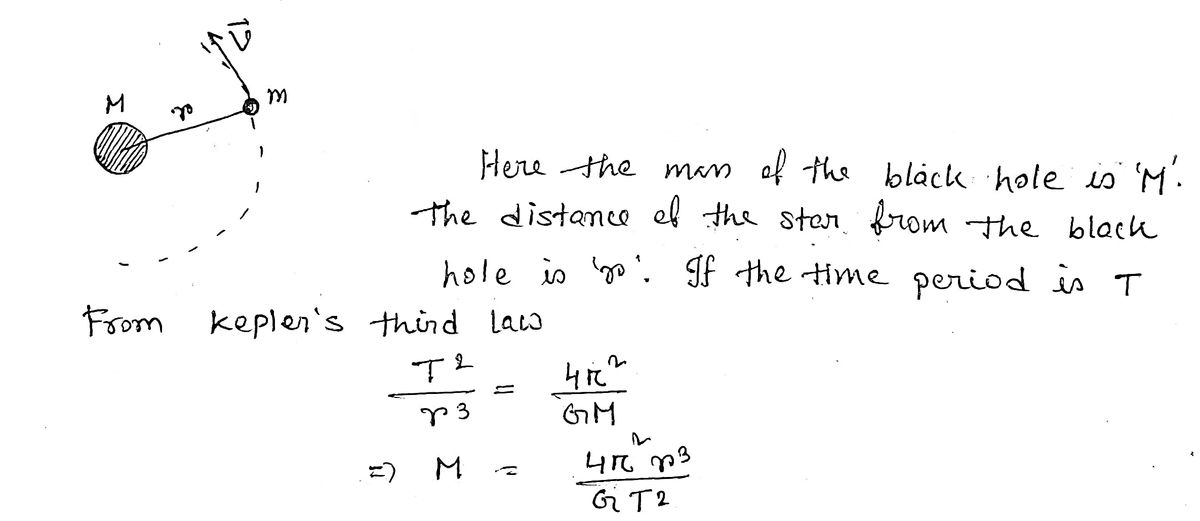 V⃗
M r m
Here the mass of the black hole is 'M'.
The distance of the star from the black
hole is 'r'. If the time period is T
From kepler's third law
T²/r³ = 4π²/GM
=> M = 4π²r³/GT²